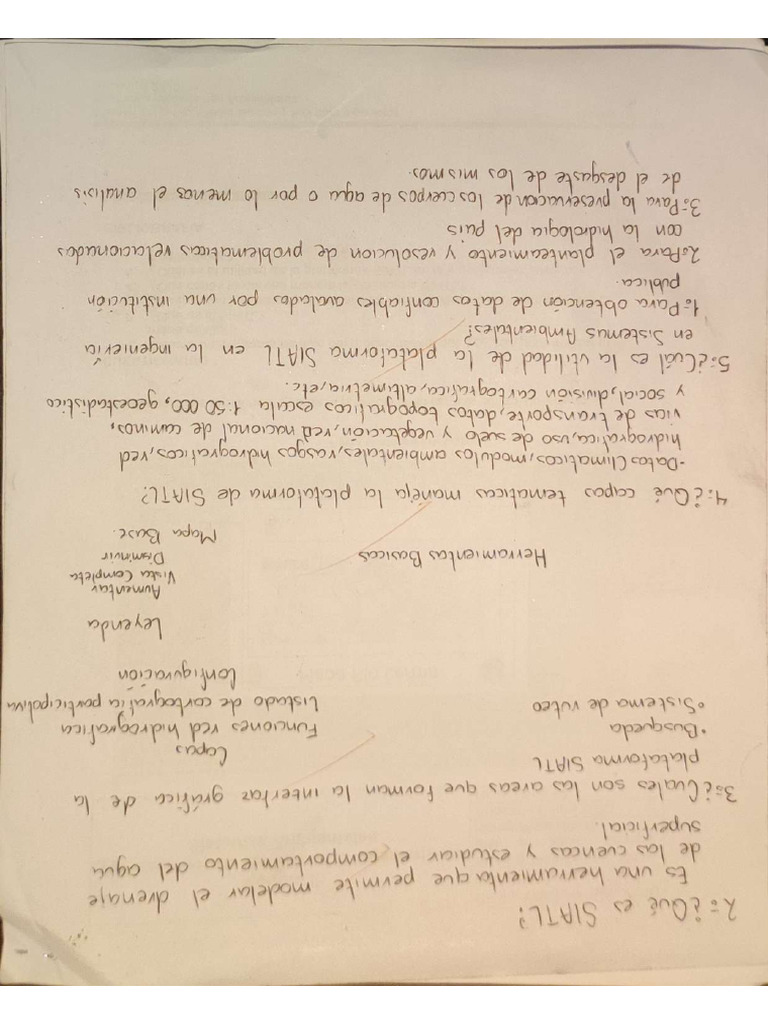 2=¿Qué es SIATL?
Es una herramienta que permite modelar el drenaje
de las cuencas y estudiar el comportamiento del agua
superficial.
3=¿Cuales son las areas que forman la interfaz gráfica de la
plataforma SIATL
•Busqueda
•Sistema de ruteo
Capas
Funciones red hidrografica
Listado de cartografia participativa
Configuración
Leyenda
Herramientas Basicas
Aumentar
Vista Completa
Disminuir
Mapa Base.
4=¿Qué capas tematicas maneja la plataforma de SIATL?
-Datos Climaticos, modulos, ambientales, rasgos hidrograficos, red
hidrografica, uso de suelo y vegetación, red nacional de caminos,
vias de transporte, datos topograficos escala 1:50 000, geoestadistico
y social, división cartografica, altimetria, etc.
5=¿Cuál es la utilidad de la plataforma SIATL en la ingenieria
en Sistemas Ambientales?
1=Para obtención de datos confiables avalados por una institución
publica.
2=Para el planteamiento y resolucion de problematicas relacionadas
con la hidrologia del pais
3=Para la preservacion de los cuerpos de agua o por lo menos el analisis
de el desgaste de los mismos.